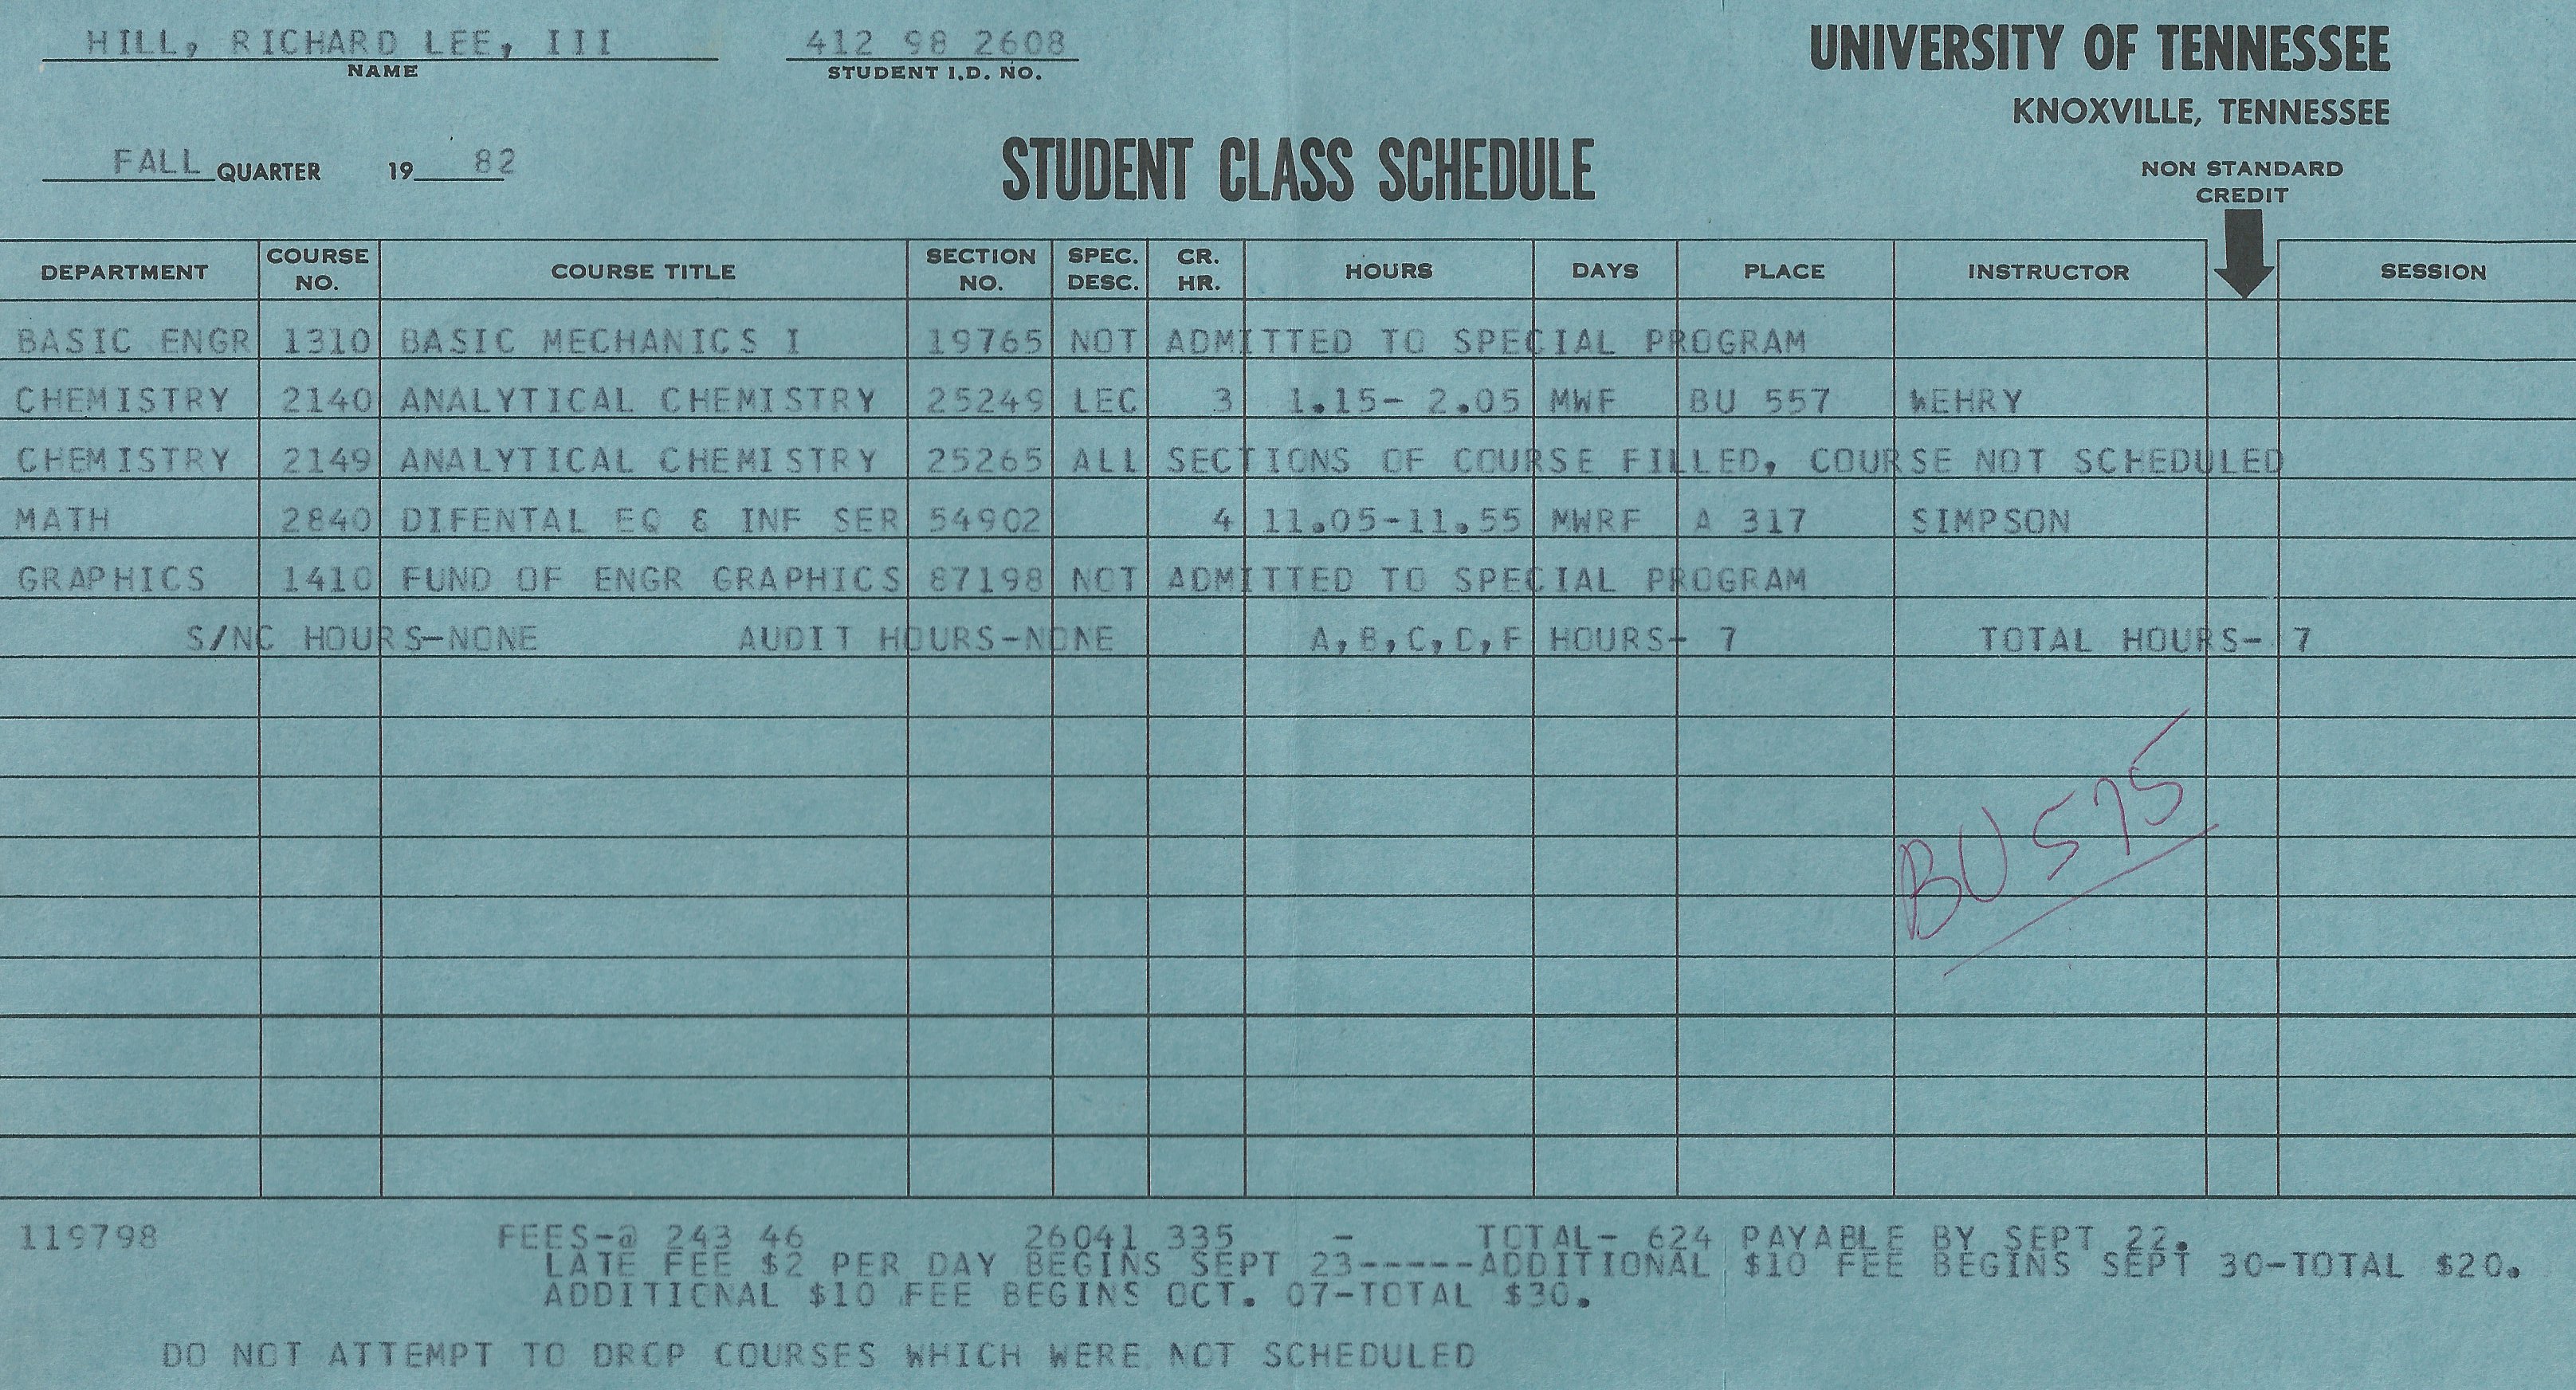 HILL, RICHARD LEE, III 412 98 2608 UNIVERSITY OF TENNESSEE
NAME STUDENT I.D. NO.
KNOXVILLE, TENNESSEE
FALL QUARTER 19 82 STUDENT CLASS SCHEDULE NON STANDARD
CREDIT
DEPARTMENT COURSE NO. COURSE TITLE SECTION NO. SPEC. DESC. CR. HR. HOURS DAYS PLACE INSTRUCTOR SESSION
BASIC ENGR 1310 BASIC MECHANICS I 19765 NOT ADMITTED TO SPECIAL PROGRAM
CHEMISTRY 2140 ANALYTICAL CHEMISTRY 25249 LEC 3 1.15- 2.05 MWF BU 557 WEHRY
CHEMISTRY 2149 ANALYTICAL CHEMISTRY 25265 ALL SECTIONS OF COURSE FILLED, COURSE NOT SCHEDULED
MATH 2840 DIFENTAL EQ & INF SER 54902 4 11.05-11.55 MWRF A 317 SIMPSON
GRAPHICS 1410 FUND OF ENGR GRAPHICS 87198 NOT ADMITTED TO SPECIAL PROGRAM
S/NC HOURS-NONE AUDIT HOURS-NONE A,B,C,D,F HOURS- 7 TOTAL HOURS- 7
BU 575
119798 FEES-@ 243 46 26041 335 - TOTAL- 624 PAYABLE BY SEPT 22.
LATE FEE $2 PER DAY BEGINS SEPT 23-----ADDITIONAL $10 FEE BEGINS SEPT 30-TOTAL $20.
ADDITIONAL $10 FEE BEGINS OCT. 07-TOTAL $30.
DO NOT ATTEMPT TO DROP COURSES WHICH WERE NOT SCHEDULED